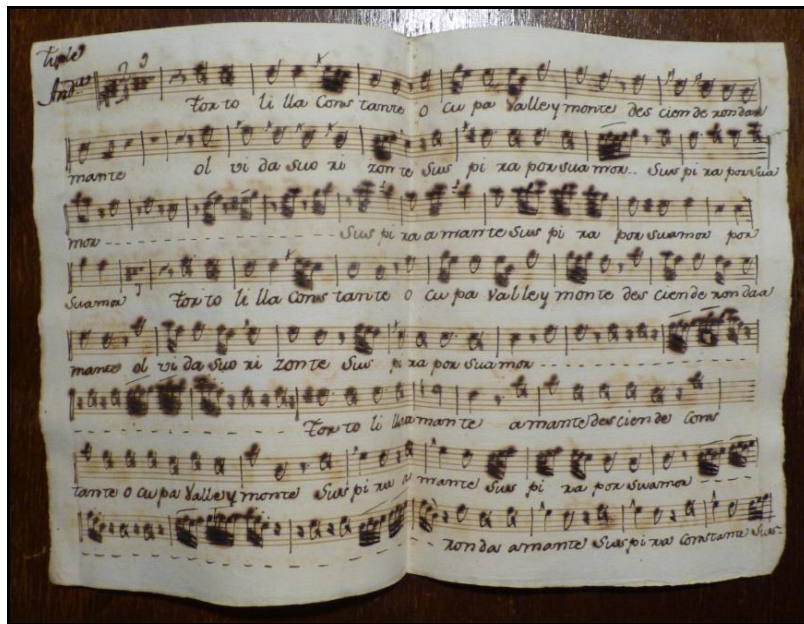 Tiple
Andte
Torto li lla Cons tante o cu pa Valle y monte des ciende ronda a
mante ol vi da Su o ri zonte Sus pi ra por su amor.. Sus pi ra por su a
mor Sus pi ra a mante Sus pi ra por su amor por
Su amor Torto li lla Cons tante o cu pa Val le y monte des ciende ronda a
mante ol vi da Su o ri zonte Sus pi ra por Su a mor
Torto li lla amante a mante des cien de Cons
tante o cu pa Valle y monte Sus pi ra a mante Sus pi ra por su amor
ronda amante Sus pi ra Constante Sus-